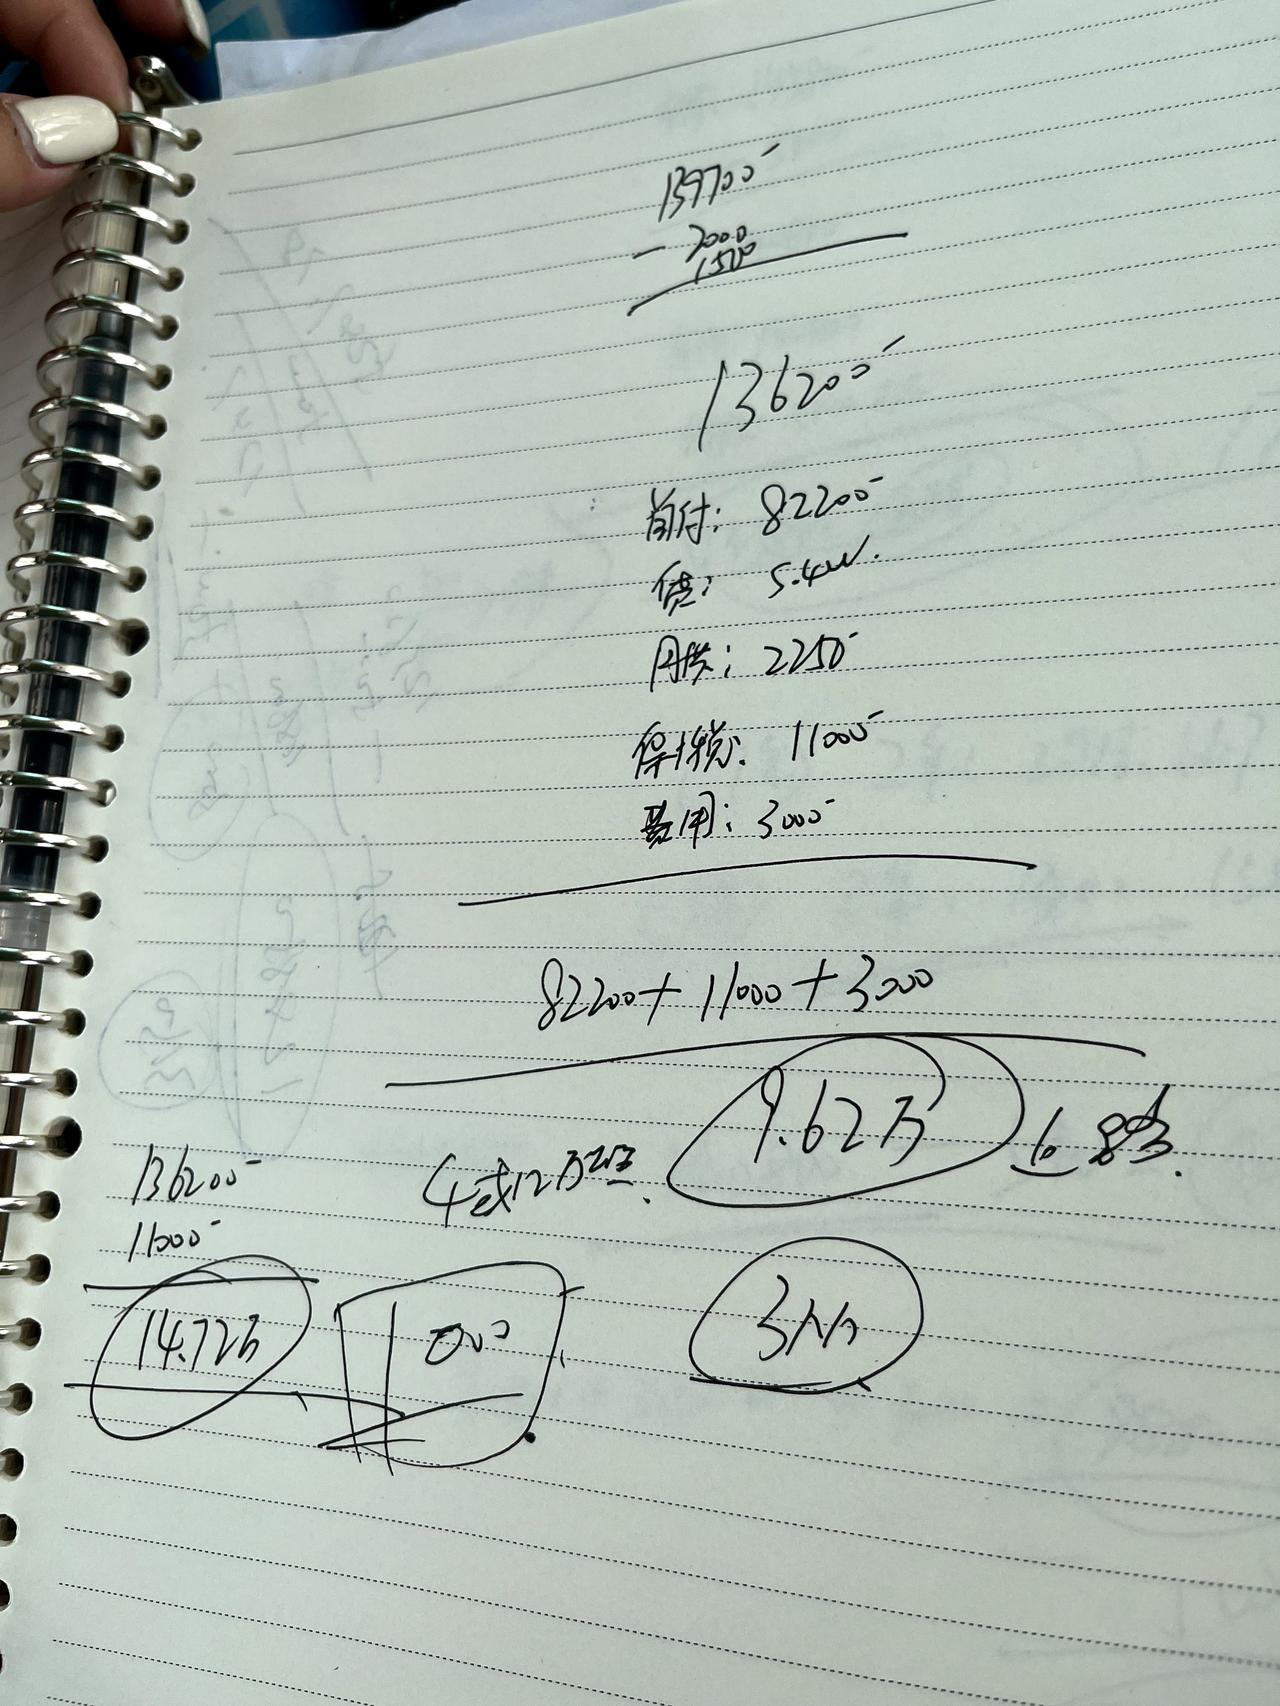 139700
- 2000
1500
136200
首付: 82200
贷: 5.4W.
月供: 2250
保+税: 11000
费用: 3000
82200+11000+3000
9.62万
4或12万
136200
11000
14.72万
1000